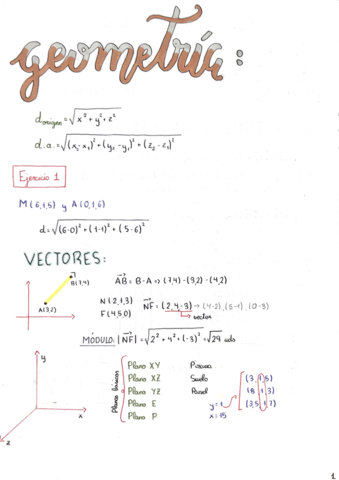 geometría:
d origen = √x² + y² + z²
d.a. = √(x₂-x₁)² + (y₂-y₁)² + (z₂-z₁)²
Ejercicio 1
M (6,1,5) y A (0,1,6)
d = √(6-0)² + (1-1)² + (5-6)²
VECTORES:
B(7,4)
A(3,2)
AB = B-A => (7,4) - (3,2) - (4,2)
N (2,1,3)
F (4,5,0)
NF = (2,4-3) → (4-2), (5-1), (0-3)
vector
MÓDULO: |NF| = √2² + 4² + (-3)² = √29 uds
y
x
z
Planos básicos
Plano XY
Plano XZ
Plano YZ
Plano E
Plano P
Pizarra
Suelo
Pared
y = 1
x = 15
(3,1,5)
(8,1,3)
(3,5,1,7)
1